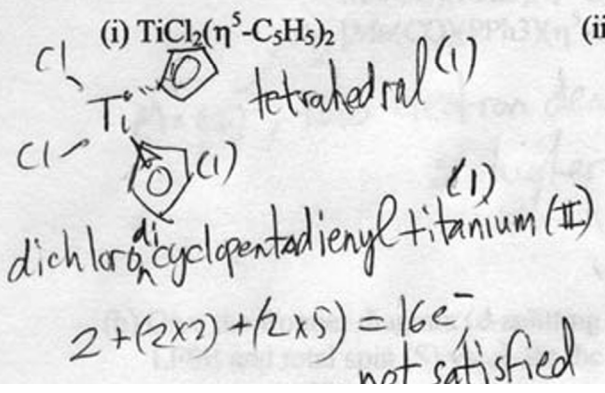 (i) TiCl₂(η⁵-C₅H₅)₂ (ii
Cl
Ti tetrahedral (1)
Cl (1)
(1)
di
dichloro cyclopentadienyl titanium (II)
n
2+(2x2)+(2x5) = 16e⁻
not satisfied